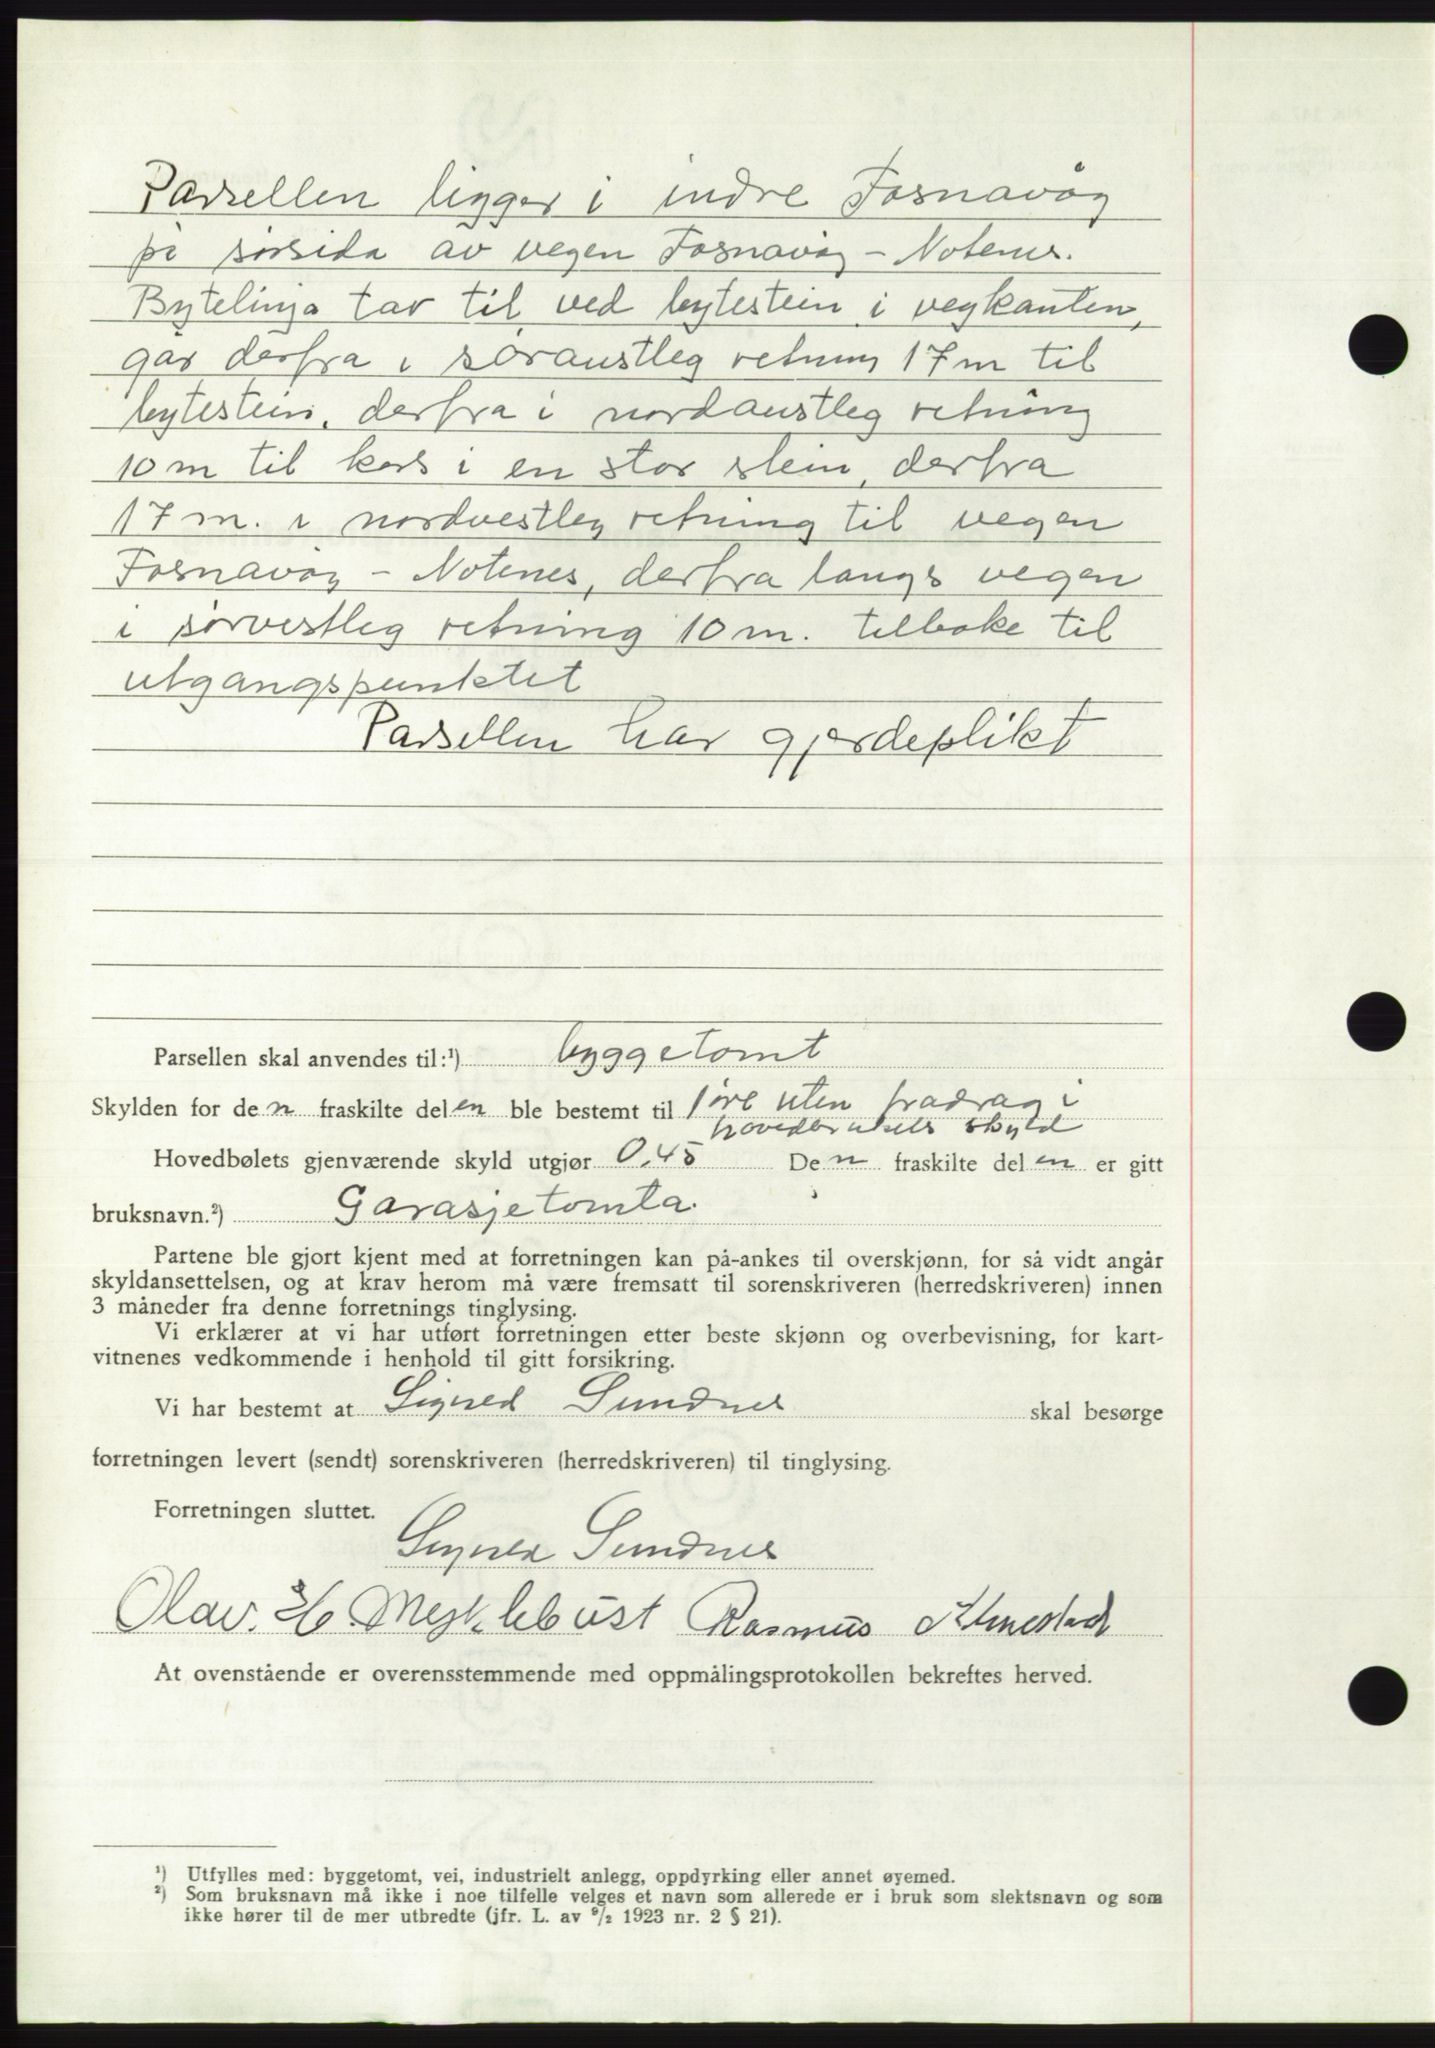 Parsellen ligger i indre Fosnavåg
på sørsida av vegen Fosnavåg – Notenes.
Bytelinja tar til ved bytestein i vegkanten,
går derfra i søraustleg retning 17 m til
bytestein, derfra i nordaustleg retning
10 m til kors i en stor stein, derfra
17 m. i nordvestleg retning til vegen
Fosnavåg – Notenes, derfra langs vegen
i sørvestleg retning 10 m. tilbake til
utgangspunktet
Parsellen har gjerdeplikt
Parsellen skal anvendes til:¹) byggetomt
Skylden for den fraskilte delen ble bestemt til 1 øre uten fradrag i
hovedbrukets skyld
Hovedbølets gjenværende skyld utgjør 0,45 Den fraskilte delen er gitt
bruksnavn.²) Garasjetomta.
Partene ble gjort kjent med at forretningen kan på-ankes til overskjønn, for så vidt angår
skyldansettelsen, og at krav herom må være fremsatt til sorenskriveren (herredskriveren) innen
3 måneder fra denne forretnings tinglysing.
Vi erklærer at vi har utført forretningen etter beste skjønn og overbevisning, for kart-
vitnenes vedkommende i henhold til gitt forsikring.
Vi har bestemt at Signed Sundnes skal besørge
forretningen levert (sendt) sorenskriveren (herredskriveren) til tinglysing.
Forretningen sluttet.
Sundnes
Olav. H. Myklebust Rasmus
At ovenstående er overensstemmende med oppmålingsprotokollen bekreftes herved.
¹) Utfylles med: byggetomt, vei, industrielt anlegg, oppdyrking eller annet øyemed.
²) Som bruksnavn må ikke i noe tilfelle velges et navn som allerede er i bruk som slektsnavn og som
ikke hører til de mer utbredte (jfr. L. av ⁹/₂ 1923 nr. 2 § 21).